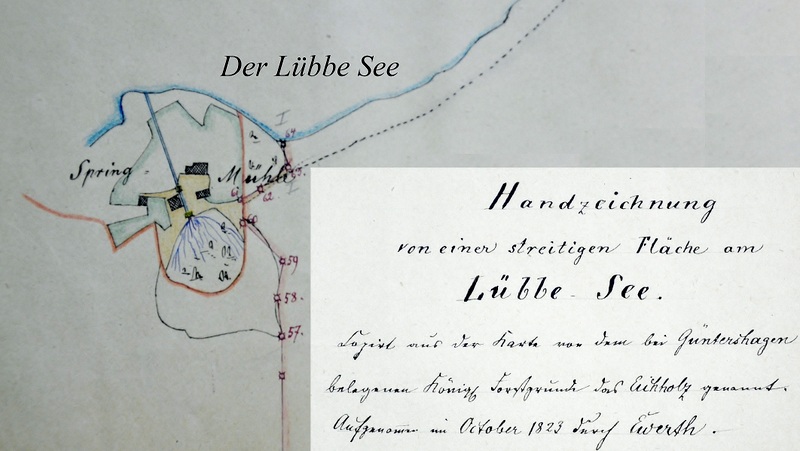 Der Lübbe See
Spring-
Mühle
62
60
59
58.
57.
Handzeichnung
von einer streitigen Fläche am
Lübbe See.
Copirt aus der Karte von dem bei Güntershagen
belegenen Königl Forstgrunde das Eichholz genannt.
Aufgenommen im October 1823 durch Ewerth.